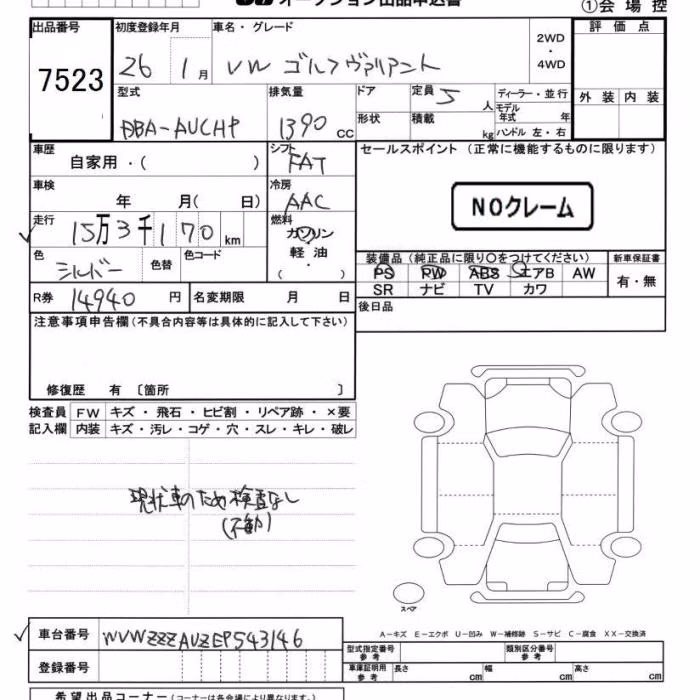 オークション出品申込書
①会場控
出品番号 初度登録年月 車名・グレード 2WD・4WD 評価点
7523 26 1月 VW ゴルフヴァリアント
型式 排気量 ドア 定員 5人 ディーラー・並行 外装 内装
DBA-AUCHP 1390 CC 形状 積載 kg モデル年式 年 ハンドル 左・右
車歴 自家用・( ) シフト FAT セールスポイント (正常に機能するものに限ります)
車検 年 月( 日) 冷房 AAC NOクレーム
走行 15万3千170km 燃料 ガソリン 軽油 ( )
色 シルバー 色替 色コード 装備品 (純正品に限り○をつけてください) 新車保証書
PS PW ABS エアB AW 有・無
SR ナビ TV カワ
R券 14940円 名変期限 月 日 後日品
注意事項申告欄(不具合内容等は具体的に記入して下さい)
修復歴 有 〔箇所 〕
検査員 FW キズ・飛石・ヒビ割・リペア跡・×要
記入欄 内装 キズ・汚レ・コゲ・穴・スレ・キレ・破レ
現状車のため検査なし
(不動)
スペア
A-キズ E-エクボ U-凹み W-補修跡 S-サビ C-腐食 XX-交換済
車台番号 WVWZZZAUZEP543146 型式指定番号 参考 類別区分番号 参考
登録番号 車庫証明用 参考 長さ cm 幅 cm 高さ cm
希望出品コーナー(コーナーは各会場により異なります)